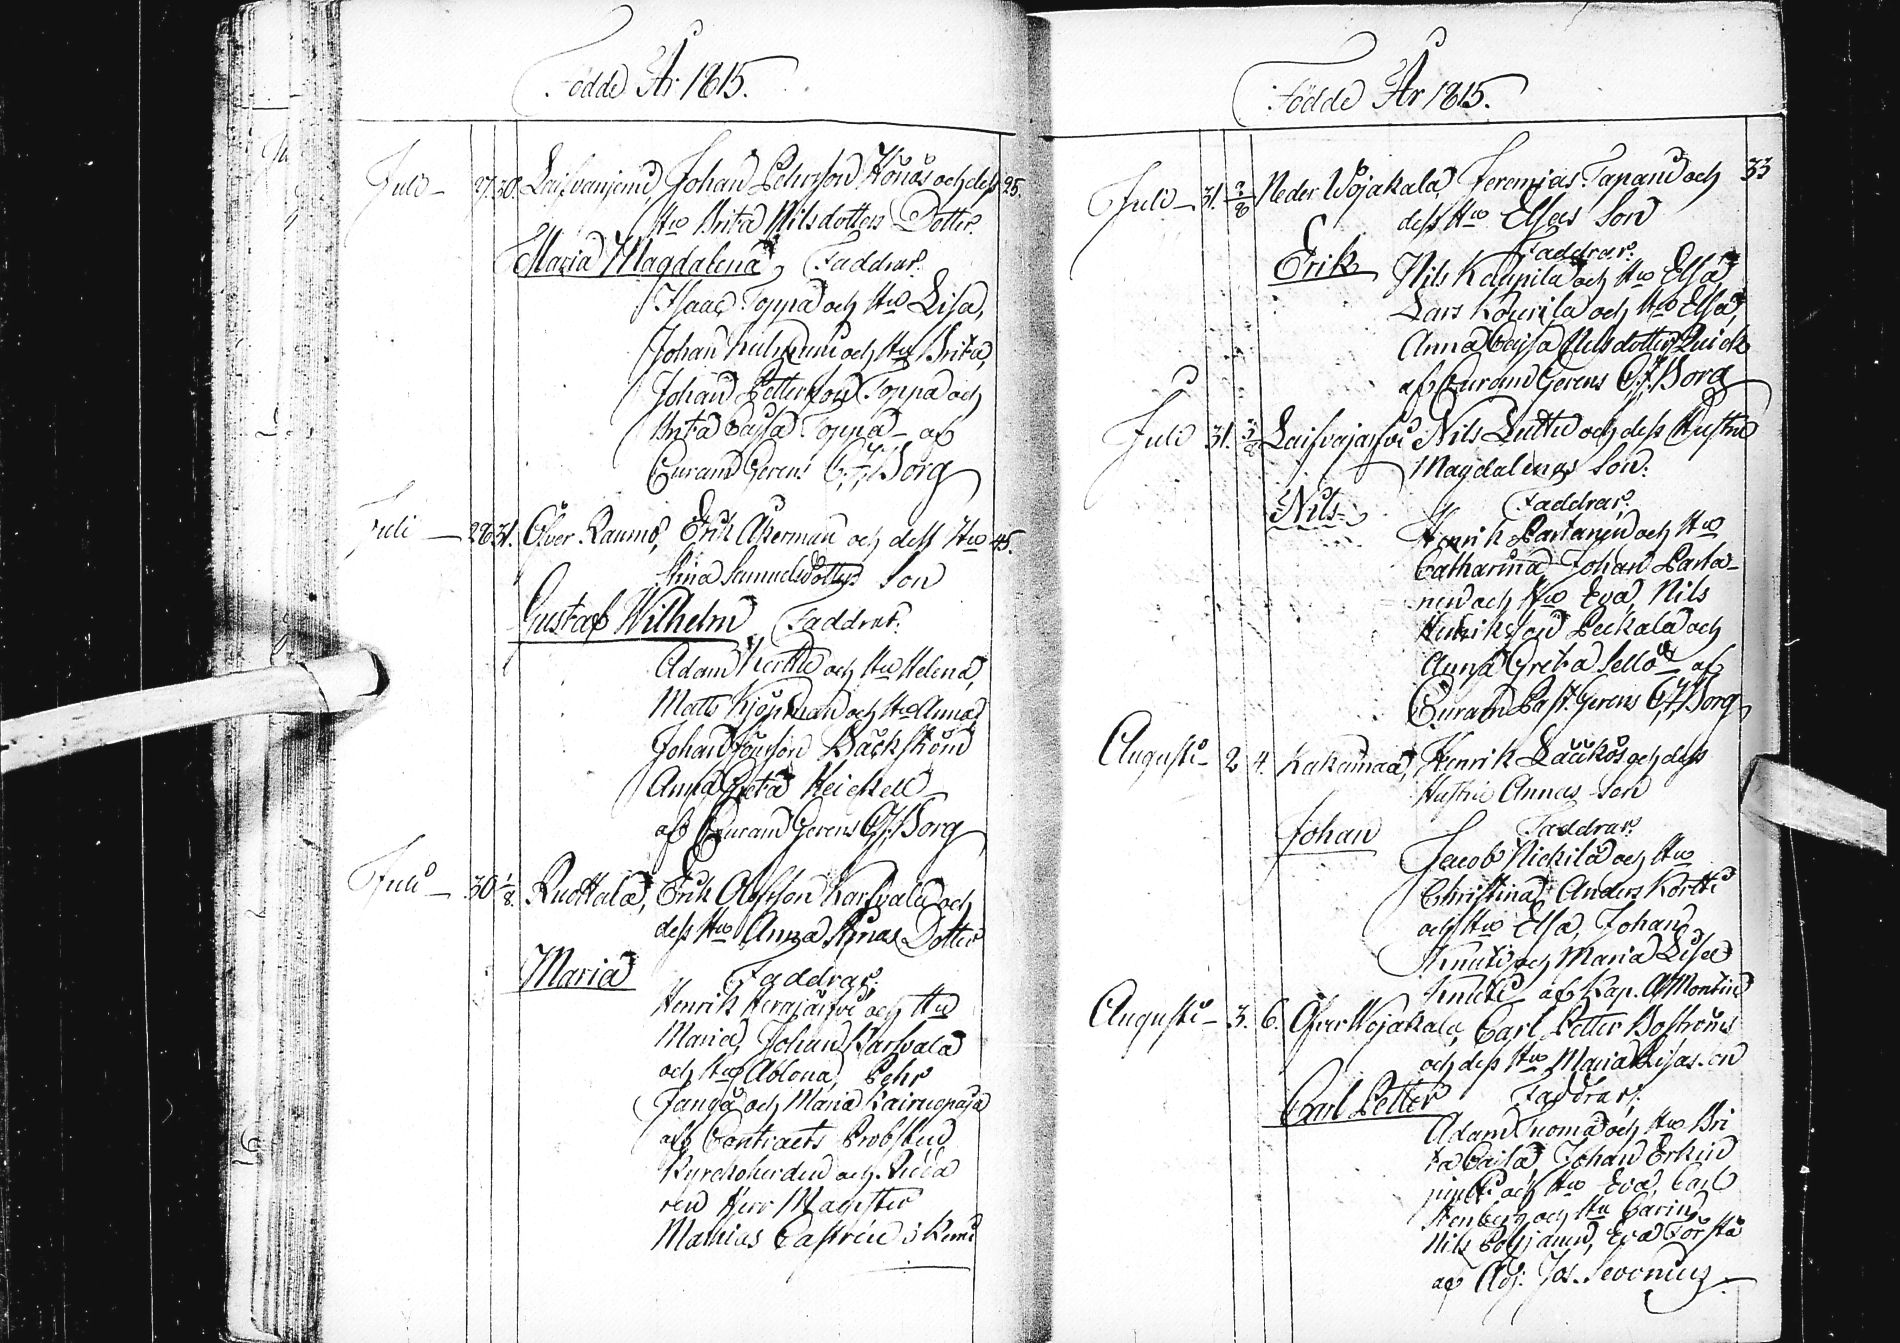 Födde År 1815.
Juli 27. 30. Johan Pehrsson Könös och dess 25.
Hu Brita Nilsdotters Dotter
Maria Magdalena, Faddrar:
Isaac Toppa och Hu Lisa,
Johan och Hu Brita,
Johan Pettersson Toppa och
Brita Cajsa Toppa af
Curam Gerens Borg
Juli 28 31. Öfver Raumo, Erik Åkerman och dess Hu 45.
Stina Samuelsdotters Son
Gustaf Wilhelm Faddrar:
Adam och Hu Helena,
Matts och Hu Anna,
Johan Bäckström
Anna Greta Heickell
af Curam Gerens Borg
Juli 30 1/8. Ruottala, Erik Olofsson Karsvala och
dess Hu Anna Stinas Dotter
Maria Faddrar:
Henrik Herajärfvi och Hu
Maria, Johan Karsvala
och Hu Ablona, Pehr
Janga och Maria
af Contracts Probsten
Kyrckoherden och Ridda
ren Herr Magister
Mathias Castrén i Kemi
Födde År 1815.
Juli 31. 2/8 Neder Wojakala, Jeremias Tapani och 33
dess Hu Elsas Son
Faddrar:
Erik Nils Kaupila och Hu Elsa,
Lars Kourila och Hu Elsa,
Anna Cajsa Nilsdotter Quick
af Curam Gerens Borg
Juli 31. 3/8 Laifvajärfvi Nils Luttu och dess Hustru
Magdalenas Son:
Nils Faddrar:
Henrik Partanen och Hu
Catharina, Johan Parta-
nen och Hu Eva, Nils
Henriksson Peckala och
Anna Greta Sello af
Curam Past. Gerens Borg
Augusti 2 4. Kakamaa, Henrik Lääkös och dess
Hustru Annas Son
Johan Faddrar:
Jacob Nickilä och Hu
Christina, Anders Kortti
och Hu Elsa, Johan
Knuti och Maria Lisa
Knuti af Kap. A Montin
Augusti 3. 6. Öfver Wojakala, Carl Petter Boströms
och dess Hu Maria Lisas Son
Carl Petter Faddrar:
Adam Tuoma och Hu Bri
ta Cajsa, Johan Erkin
juntti och Hu Eva, Carl
Stenberg och Hu Carin,
Nils Pohjanen, Eva Förstå
af Adj. Jos. Sevonius